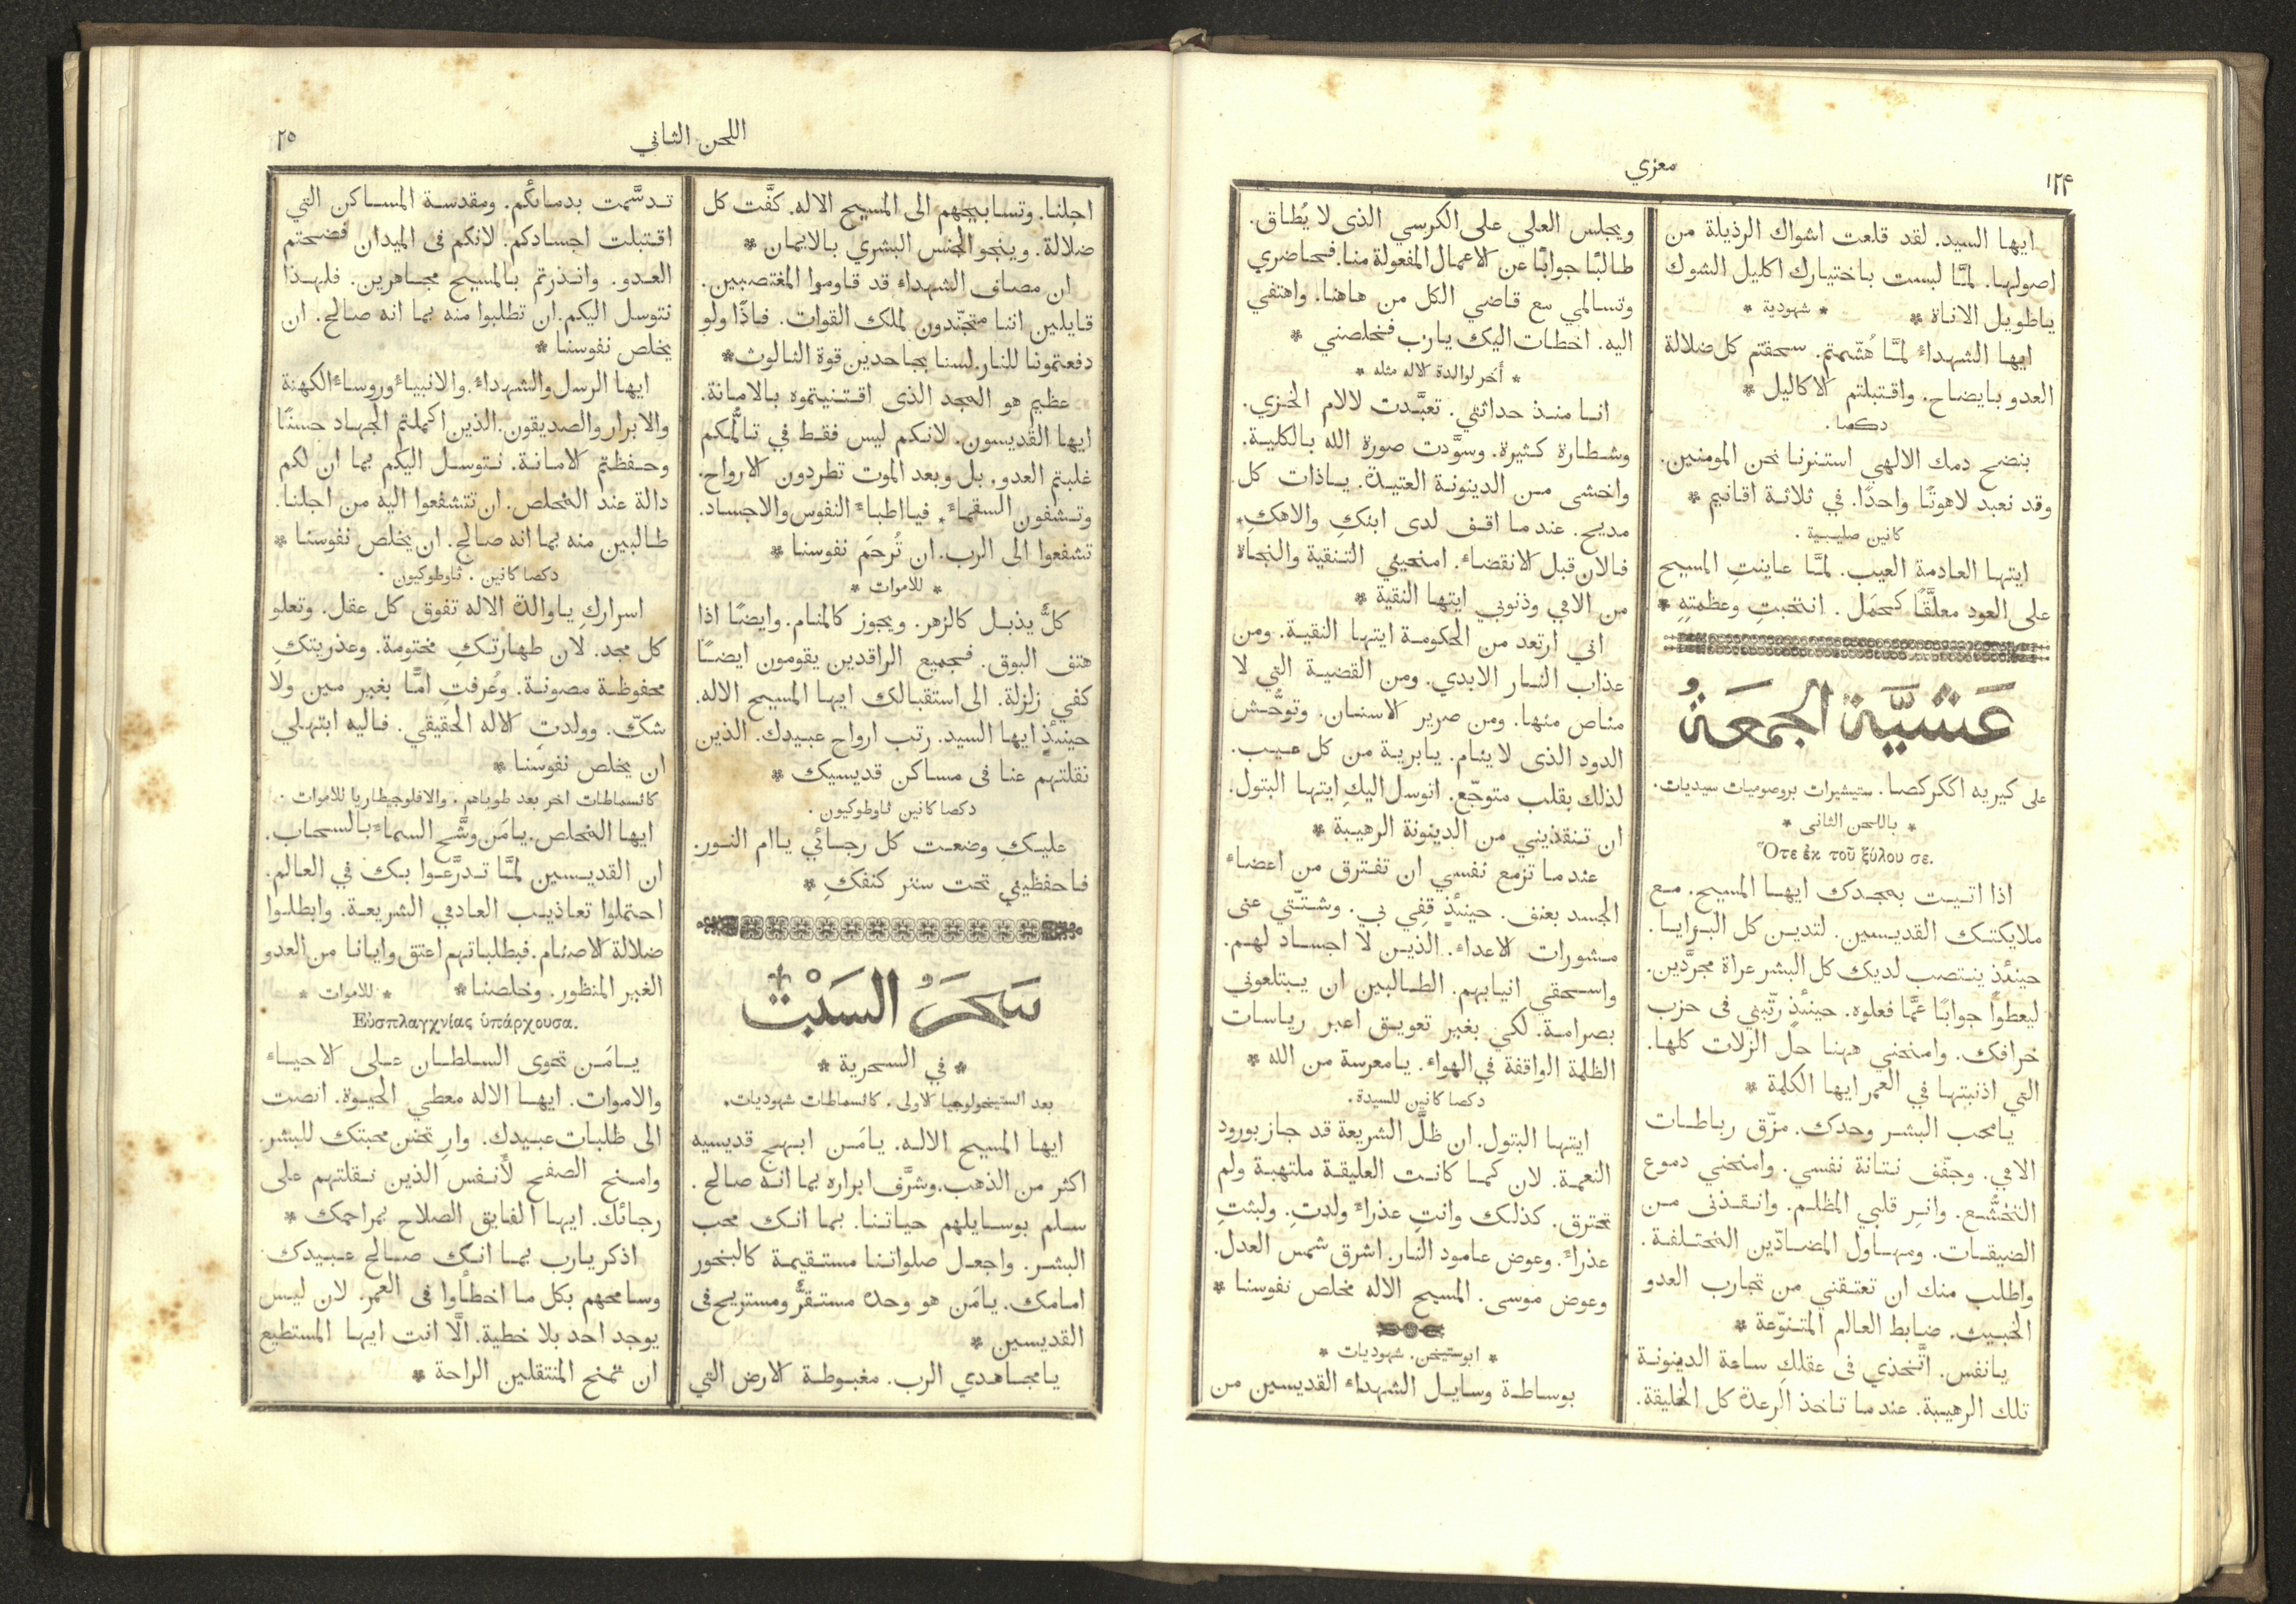 معزي
١٢٤
ايها السيد. لقد قلعت اشواك الرذيلة من
اصولها. لمَّا لبست باختيارك اكليل الشوك
ياطويل الاناة * * شهودية *
ايها الشهداء لمَّا هُشّمتم. سحقتم كل ضلالة
العدو بايضاح. واقتبلتم الاكاليل *
دكصا.
بنضح دمك الالهي استنرنا نحن المومنين.
وقد نعبد لاهوتًا واحدًا. في ثلاثة اقانيم *
كانين صليبية.
ايتها العادمة العيب. لمَّا عاينتِ المسيح
على العود معلَّقًا كحمَل. انتحبتِ وعظمتِهِ *
عَشيَّة الجمعَةُ
على كيريه اككركصا. ستيشيرات بروصوميات سيديات.
* باللحن الثانى *
Ὅτε ἐκ τοῦ ξύλου σε.
اذا اتيت بمجدك ايها المسيح. مع
ملايكتك القديسين. لتدين كل البرايا.
حينئذٍ ينتصب لديك كل البشر عراة مجرَّدين.
ليعطوا جوابًا عمَّا فعلوه. حينئذٍ رتّبني فى حزب
خرافك. وامنحني ههنا حل الزلات كلها.
التي اذنبتها في العمر ايها الكلمة *
يامحب البشر وحدك. مزّق رباطات
الامي. وجفّف نتانة نفسي. وامنحني دموع
التخشُّع. وانرِ قلبي المظلم. وانقذنى من
الضيقات. ومهاول المضادّين المختلفة.
واطلب منك ان تعتقني من تجارب العدو
الخبيث. ضابط العالم المتنوّعة *
يانفس. اتَّخذي فى عقلكِ ساعة الدينونة
تلك الرهيبة. عندما تاخذ الرعدة كل الخليقة.
ويجلس العلي على الكرسي الذى لا يُطاق.
طالبًا جوابًا عن الاعمال المفعولة منا. فحاضري
وتسالمي مع قاضي الكل من هاهنا. واهتفي
اليه. اخطات اليك يارب فخلصني *
* أخر لوالدة الاله مثله *
انا منذ حداثتي. تعبَّدت لالام الخزي.
وشطارة كثيرة. وسوَّدت صورة الله بالكلية.
واخشى من الدينونة العتيدة. ياذات كل
مديح. عند ما اقف لدى ابنكِ والاهكِ.
فالان قبل الانقضاء. امنحيني التنقية والنجاة
من الامي وذنوبي ايتها النقية *
اني ارتعد من الحكومة ايتها النقية. ومن
عذاب النار الابدي. ومن القضية التي لا
مناص منها. ومن صرير الاسنان. وتوحُّش
الدود الذى لاينام. يابرية من كل عيب.
لذلك بقلب متوجّع. اتوسل اليكِ ايتها البتول.
ان تنقذيني من الدينونة الرهيبة *
عندما تزمع نفسي ان تفترق من اعضاء
الجسد بعنف. حينئذٍ قفِي بي. وشتّتي عنى
مشورات الاعداء. الذين لا اجساد لهم.
واسحقي انيابهم. الطالبين ان يبتلعوني
بصرامة. لكي بغير تعويق اعبر رياسات
الظلمة الواقفة في الهواء. يامعرسة من الله *
دكصا كانين للسيدة.
ايتها البتول. ان ظلَّ الشريعة قد جاز بورود
النعمة. لان كما كانت العليقة ملتهبة ولم
تحترق. كذلك وانتِ عذراءً ولدتِ. ولبثتِ
عذراءً. وعوض عامود النار. اشرق شمس العدل.
وعوض موسى. المسيح الاله مخلص نفوسنا *
* ابوستيخن. شهوديات *
بوساطة وسايل الشهداء القديسين من
اللحن الثاني
٢٥
اجلنا. وتسابيحهم الى المسيح الاله. كفَّت كل
ضلالة. وينجو الجنس البشري بالايمان *
ان مصاف الشهداء قد قاوموا المغتصبين.
قايلين اننا متجنّدون لملك القوات. فاذًا ولو
دفعتمونا للنار. لسنا بجاحدين قوة الثالوث *
عظيم هو المجد الذى اقتنيتموه بالامانة.
ايها القديسون. لانكم ليس فقط في تألُّمكم
غلبتم العدو. بل وبعد الموت تطردون الارواح.
وتشفون السقماء. فيااطباء النفوس والاجساد.
تشفعوا الى الرب. ان تُرحمَ نفوسنا *
* للاموات *
كلٌّ يذبل كالزهر. ويجوز كالمنام. وايضًا اذا
هتف البوق. فجميع الراقدين يقومون ايضًا
كفي زلزلة. الى استقبالك ايها المسيح الاله.
حينئذٍ ايها السيد. رتب ارواح عبيدك. الذين
نقلتهم عنا فى مساكن قديسيك *
دكصا كانين ثاوطوكيون.
عليكِ وضعت كل رجائي ياام النور.
فاحفظيني تحت ستر كنفكِ *
سَحَرُ السَبْت
* في السحرية *
بعد الستيخولوجيا الاولى. كاتسماطات شهوديات.
ايها المسيح الاله. يامَن ابهج قديسيه
اكثر من الذهب. وشرَّف ابراره بما انه صالح.
سلم بوسايلهم حياتنا. بما انك محب
البشر. واجعل صلواتنا مستقيمة كالبخور
امامك. يامَن هو وحده مستقرٌّ ومستريح فى
القديسين *
يامجاهدي الرب. مغبوطة الارض التي
تدسَّمت بدمائكم. ومقدسة المساكن التي
اقتبلت اجسادكم. لانكم فى الميدان فضحتم
العدو. وانذرتم بالمسيح مجاهرين. فلهذا
نتوسل اليكم. ان تطلبوا منه بما انه صالح. ان
يخلص نفوسنا *
ايها الرسل والشهداء. والانبياء وروساء الكهنة
والابرار والصديقون. الذين اكملتم الجهاد حسنًا
وحفظتم الامانة. نتوسل اليكم بما ان لكم
دالة عند المخلص. ان تتشفعوا اليه من اجلنا.
طالبين منه بما انه صالح. ان يخلص نفوسنا *
دكصا كانين. ثاوطوكيون.
اسراركِ ياوالدة الاله تفوق كل عقل. وتعلو
كل مجد. لان طهارتكِ مختومة. وعذريتكِ
محفوظة مصونة. وعُرفتِ امًّا بغير مين ولا
شكّ. وولدتِ الاله الحقيقي. فاليه ابتهلي
ان يخلص نفوسنا *
كاتسماطات اخر بعد طوباهم. والافلوجيطاريا للاموات.
ايها المخلص. يامَن وشَّح السماء بالسحاب.
ان القديسين لمَّا تدرَّعوا بك في العالم.
احتملوا تعاذيب العادمي الشريعة. وابطلوا
ضلالة الاصنام. فبطلباتهم اعتق وايانا من العدو
الغير المنظور. وخلصنا * * للاموات *
Εὐσπλαγχνίας ὑπάρχουσα.
يامَن تحوى السلطان على الاحياء
والاموات. ايها الاله معطي الحيوة. انصت
الى طلبات عبيدك. وارِ تحنن محبتك للبشر.
وامنح الصفح لأنفس الذين نقلتهم على
رجائك. ايها الفايق الصلاح بمراحمك *
اذكر يارب بما انك صالح عبيدك
وسامحهم بكل ما اخطأوا فى العمر. لان ليس
يوجد احد بلا خطية. الَّا انت ايها المستطيع
ان تمنح المنتقلين الراحة *